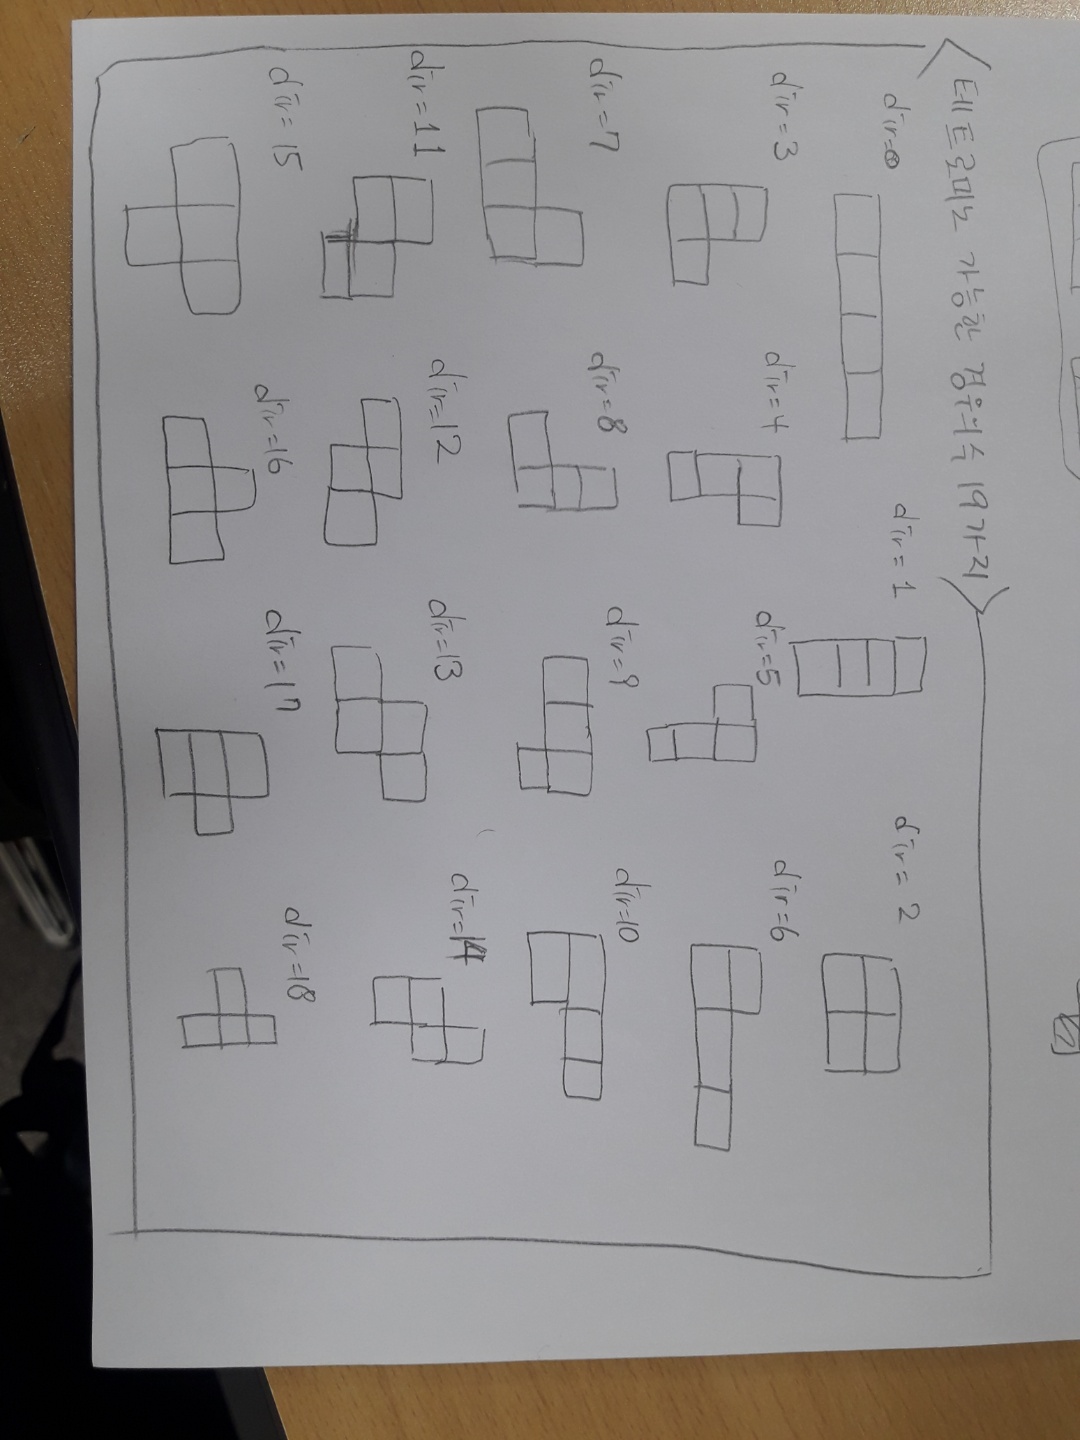 <테트로미노 가능한 경우의수 19가지>
dir=0
dir=1
dir=2
dir=3
dir=4
dir=5
dir=6
dir=7
dir=8
dir=9
dir=10
dir=11
dir=12
dir=13
dir=14
dir=15
dir=16
dir=17
dir=18